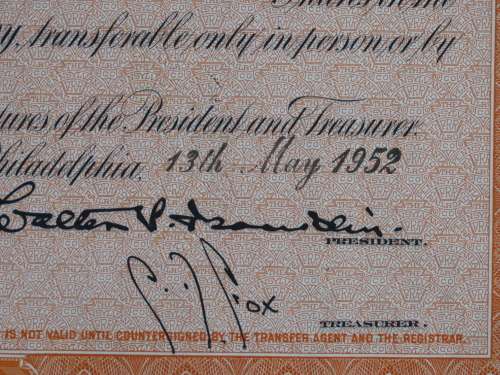 y, transferable only in person or by
tures of the President and Treasurer.
Philadelphia, 13th May 1952
Walter S. Franklin
PRESIDENT.
Fox
TREASURER.
IS NOT VALID UNTIL COUNTERSIGNED BY THE TRANSFER AGENT AND THE REGISTRAR.